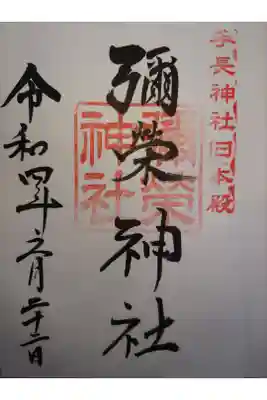 手長神社旧本殿
彌榮神社
彌榮神社
令和四年六月二十二日